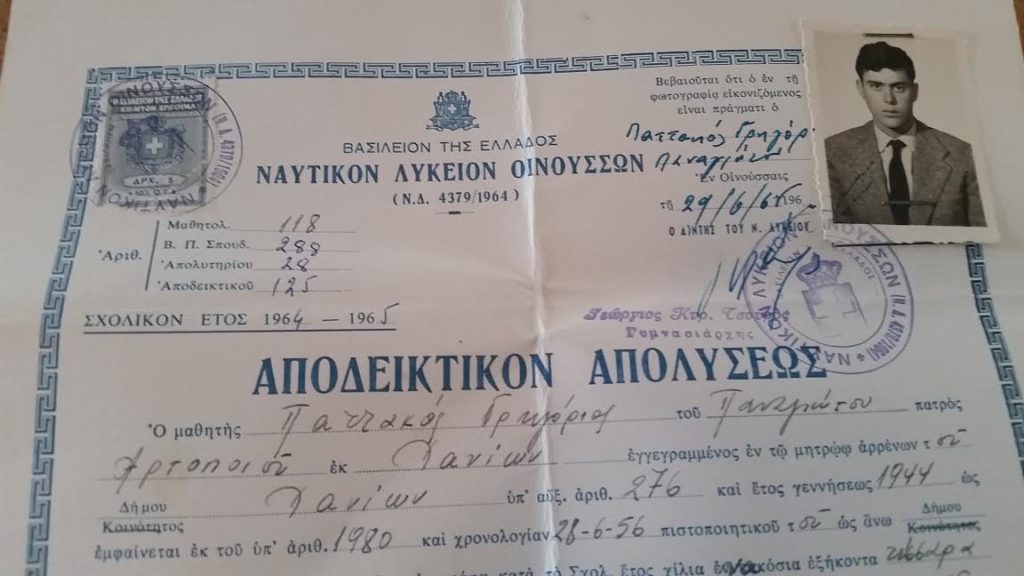 Βεβαιοῦται ὅτι ὁ ἐν τῇ
φωτογραφίᾳ εἰκονιζόμενος
εἶναι πράγματι ὁ
Παττακός Γρηγόρ.
Ἐν Οἰνούσσαις
τῇ 29/6/65 196
Ὁ Δ/ΝΤΗΣ ΤΟΥ Ν. ΛΥΚΕΙΟΥ
Γεώργιος Κυρ.
Γυμνασιάρχης
ΒΑΣΙΛΕΙΟΝ ΤΗΣ ΕΛΛΑΔΟΣ
ΝΑΥΤΙΚΟΝ ΛΥΚΕΙΟΝ ΟΙΝΟΥΣΣΩΝ
(Ν.Δ. 4379/1964)
Ἀριθ.
Μαθητολ. 118
Β. Π. Σπουδ. 288
Ἀπολυτηρίου 28
Ἀποδεικτικοῦ 125
ΣΧΟΛΙΚΟΝ ΕΤΟΣ 1964 — 1965
ΑΠΟΔΕΙΚΤΙΚΟΝ ΑΠΟΛΥΣΕΩΣ
Ὁ μαθητὴς Παττακός Γρηγόριος τοῦ Παναγιώτου πατρὸς
Ἀρτοποιοῦ ἐκ Χανίων ἐγγεγραμμένος ἐν τῷ μητρῴῳ ἀρρένων τοῦ
Δήμου Χανίων ὑπ' αὔξ. ἀριθ. 276 καὶ ἔτος γεννήσεως 1944 ὡς
Κοινότητος
ἐμφαίνεται ἐκ τοῦ ὑπ' ἀριθ. 1980 καὶ χρονολογίαν 28-6-56 πιστοποιητικοῦ τοῦ ὡς ἄνω Δήμου
Κοινότητος
κατὰ τὸ Σχολ. ἔτος χίλια ἐννακόσια ἑξήκοντα τέσσαρα